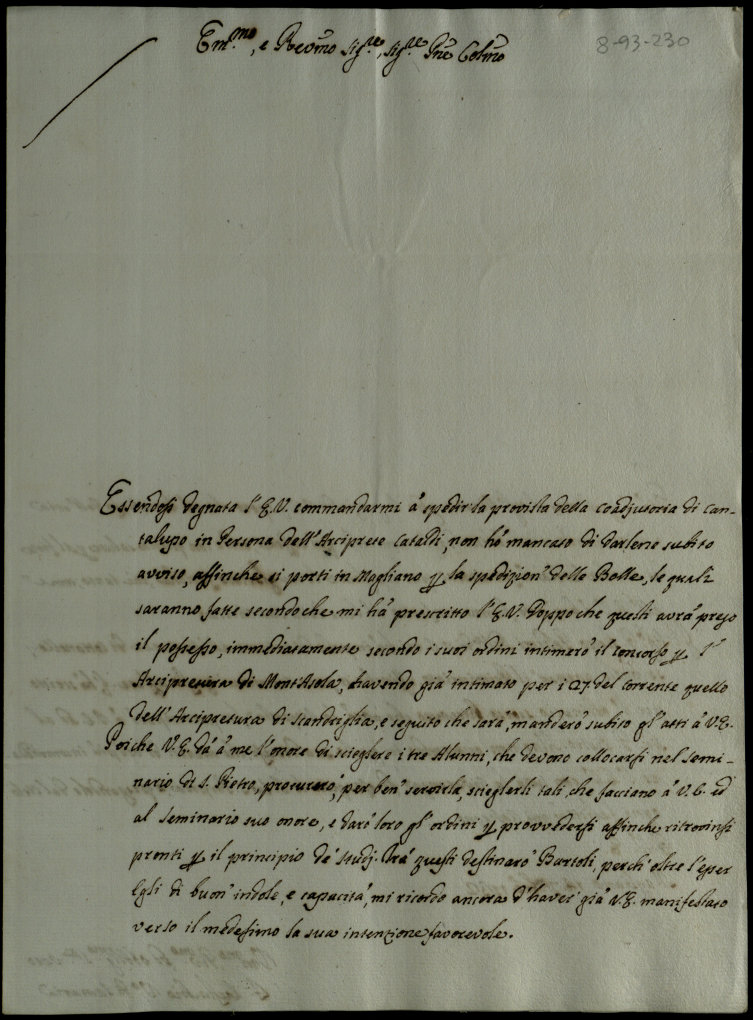 Em.mo, e Reumo Sig.re, Sig.re Pne Colmo
8-93-230
Essendosi degnata l'E.V. commandarmi à spedir la provista della coadjutoria di Can-
talupo in Persona dell'Arciprete Cataldi, non hò mancato di darlene subito
avviso, affinche si porti in Magliano p la spedizion' delle Bolle, le quali
saranno fatte secondo che mi hà prescritto l'E.V. Doppo che questi avrà preso
il possesso, immediatamente secondo i suoi ordini intimerò il concorso p l'
Arcipretura di Mont'Asola, havendo già intimato per i 27 del corrente quello
dell'Arcipretura di Scandriglia, e seguito che sarà, manderò subito gl'atti à V.E.
Poiche V.E. dà à me l'onore di scieglere i tre Alunni, che devono collocarsi nel Semi-
nario di S. Pietro, procurerò, per ben' servirla, scieglerli tali, che facciano à V.E. ed
al Seminario suo onore, e darò loro gl'ordini p provvedersi affinche ritrovinsi
pronti p il principio de' studj. Trà questi destinarò Bartoli, perche oltre l'esser
Egli di buon' indole, e capacità, mi ricordo ancora d'haver' già V.E. manifestato
verso il medesimo la sua intenzione favorevole.